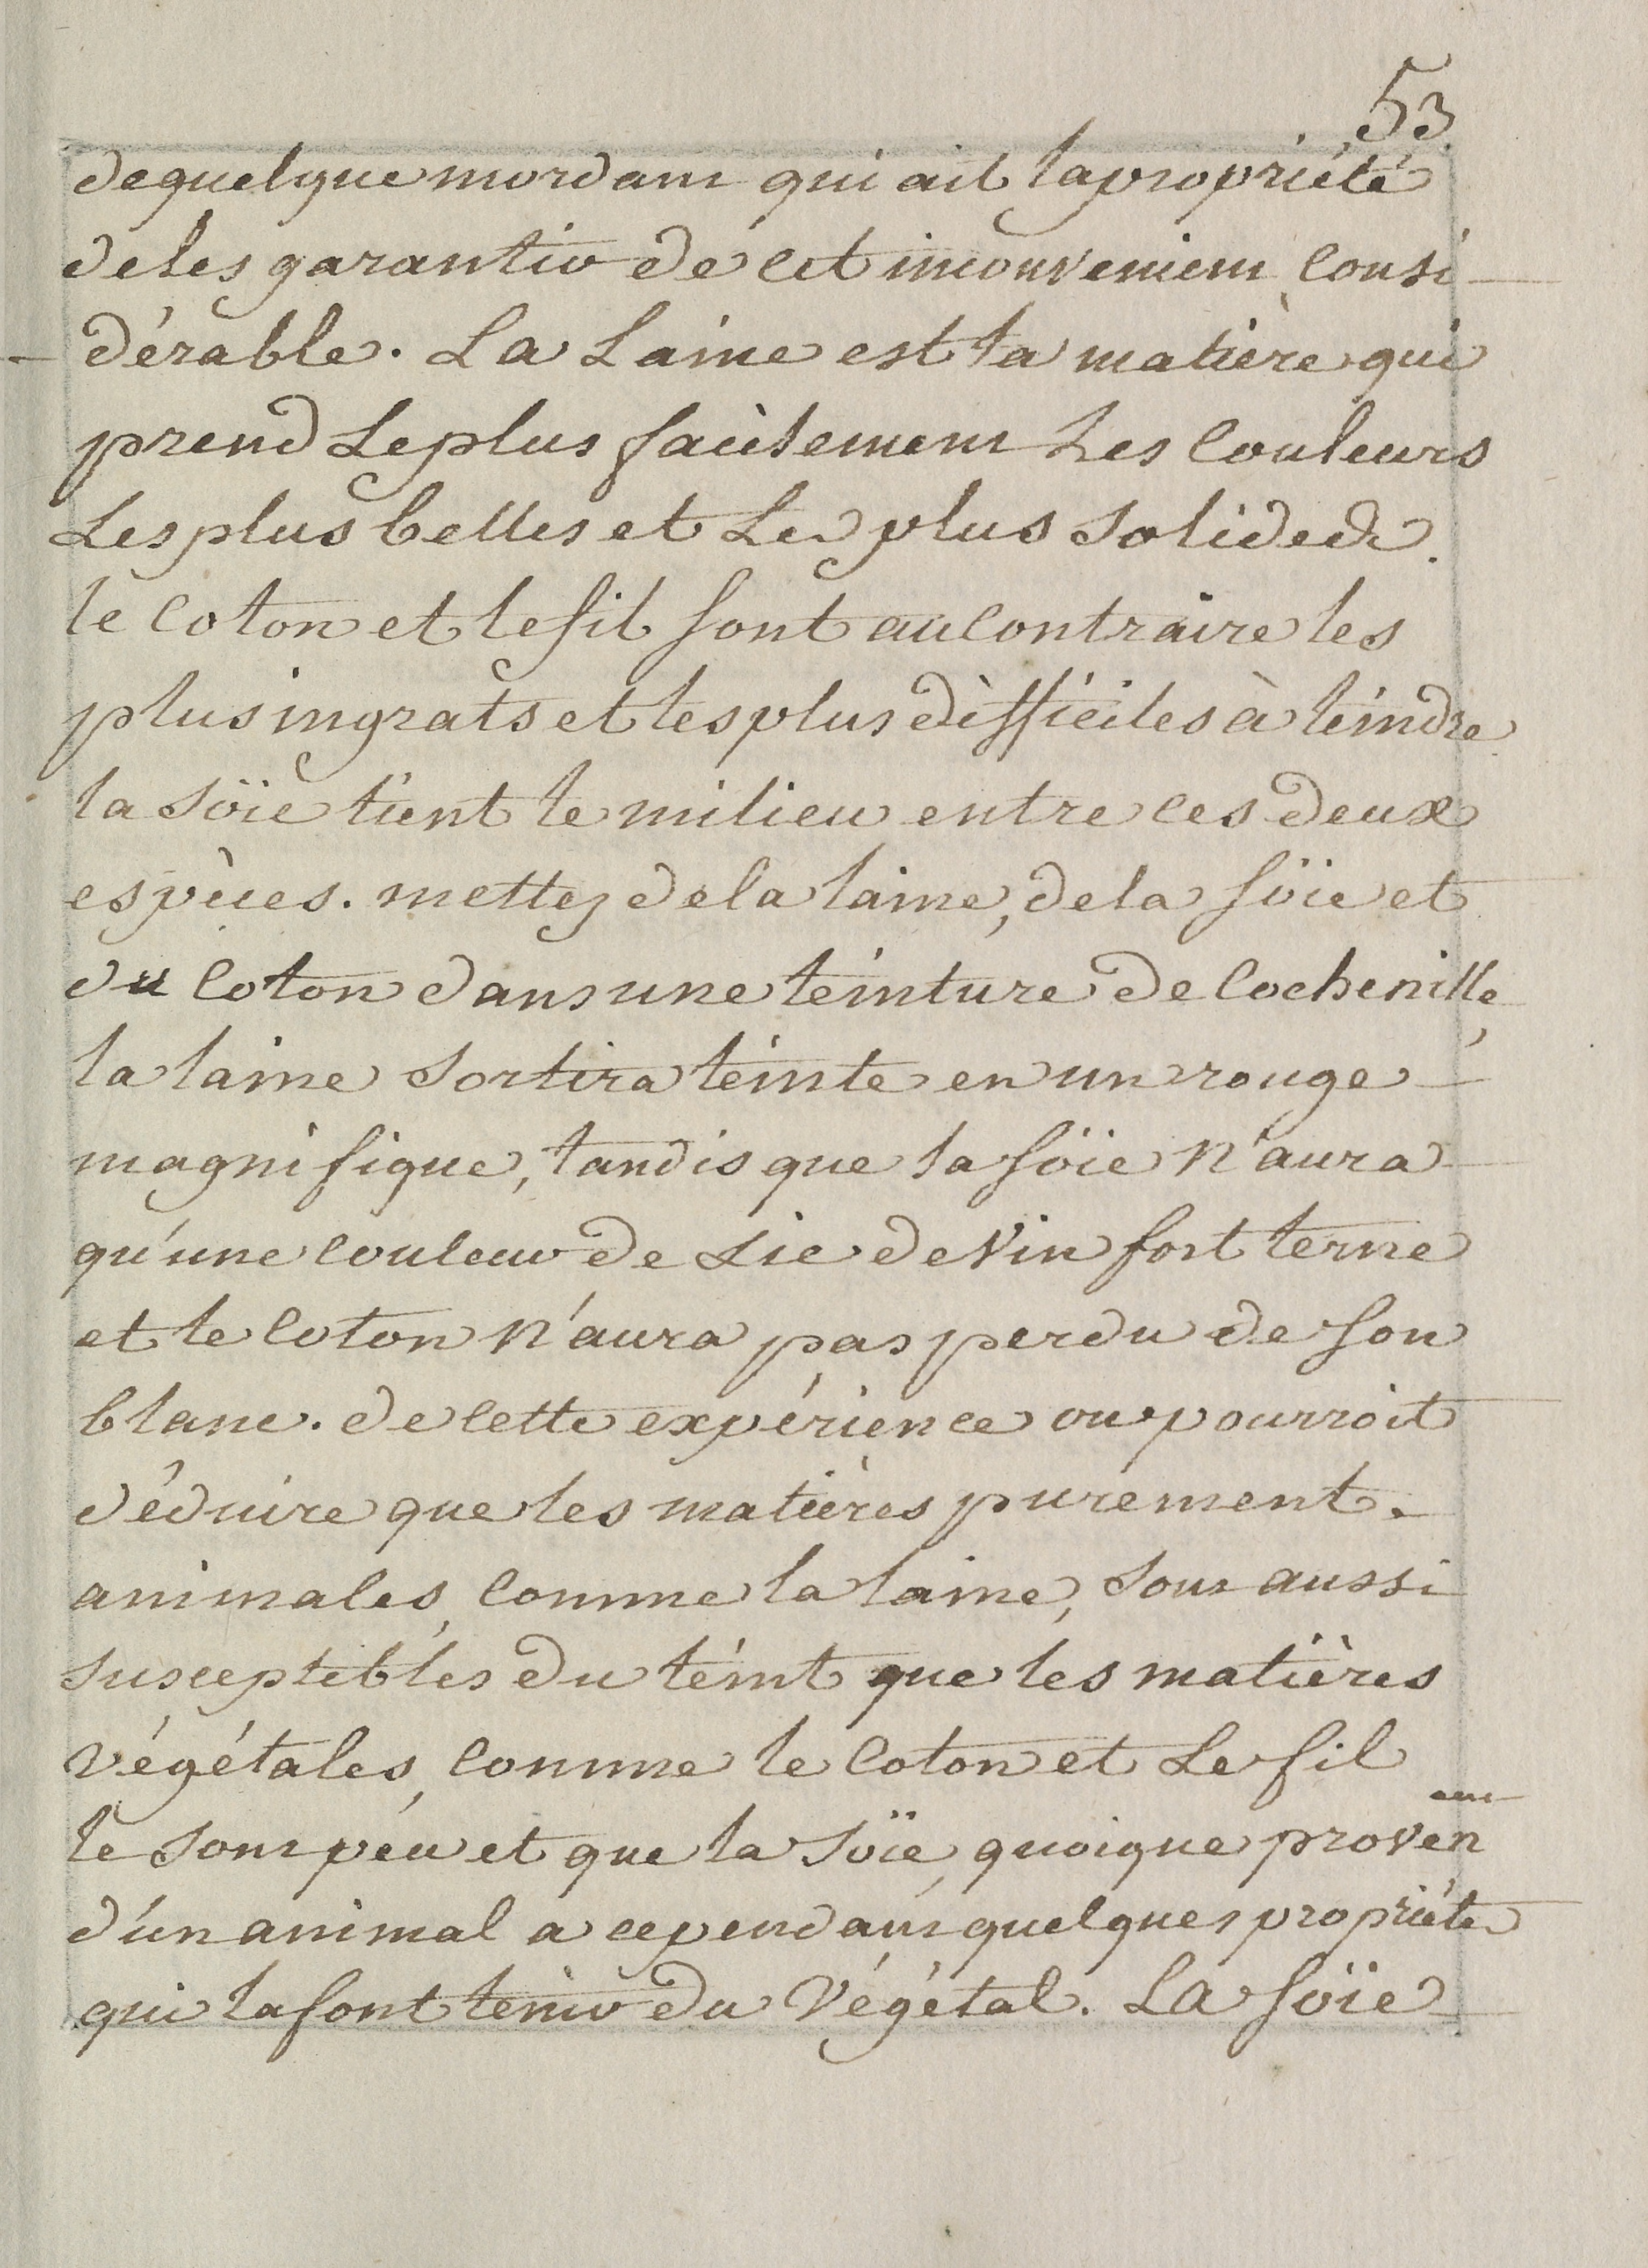 53
de quelque mordant qui ait la propriété
de les garantir de cet inconvenient consi-
-dérable. La Laine est la matière qui
prend Le plus facilement Les Couleurs
Les plus belles et Les plus Solides.
le Coton et le fil sont au Contraire les
plus ingrats et les plus difficiles à teindre
la Soïe tient le milieu entre ces deux
espèces. mettez de la laine, de la soïe et
du Coton dans une teinture de Cochenille,
la laine Sortira teinte en un rouge
magnifique, tandis que la soïe n'aura
qu'une couleur de Lie de Vin fort terne
et le Coton n'aura pas perdu de son
blanc. de cette expérience on pourroit
déduire que les matières purement
animales, Comme la laine, Sont aussi
Susceptibles du teint que les matières
Végétales, Comme le Coton et Le fil
le Sont peu et que la Soïe, quoique provenant
d'un animal a cependant quelques propriétés
qui la font tenir du Végétal. La soïe